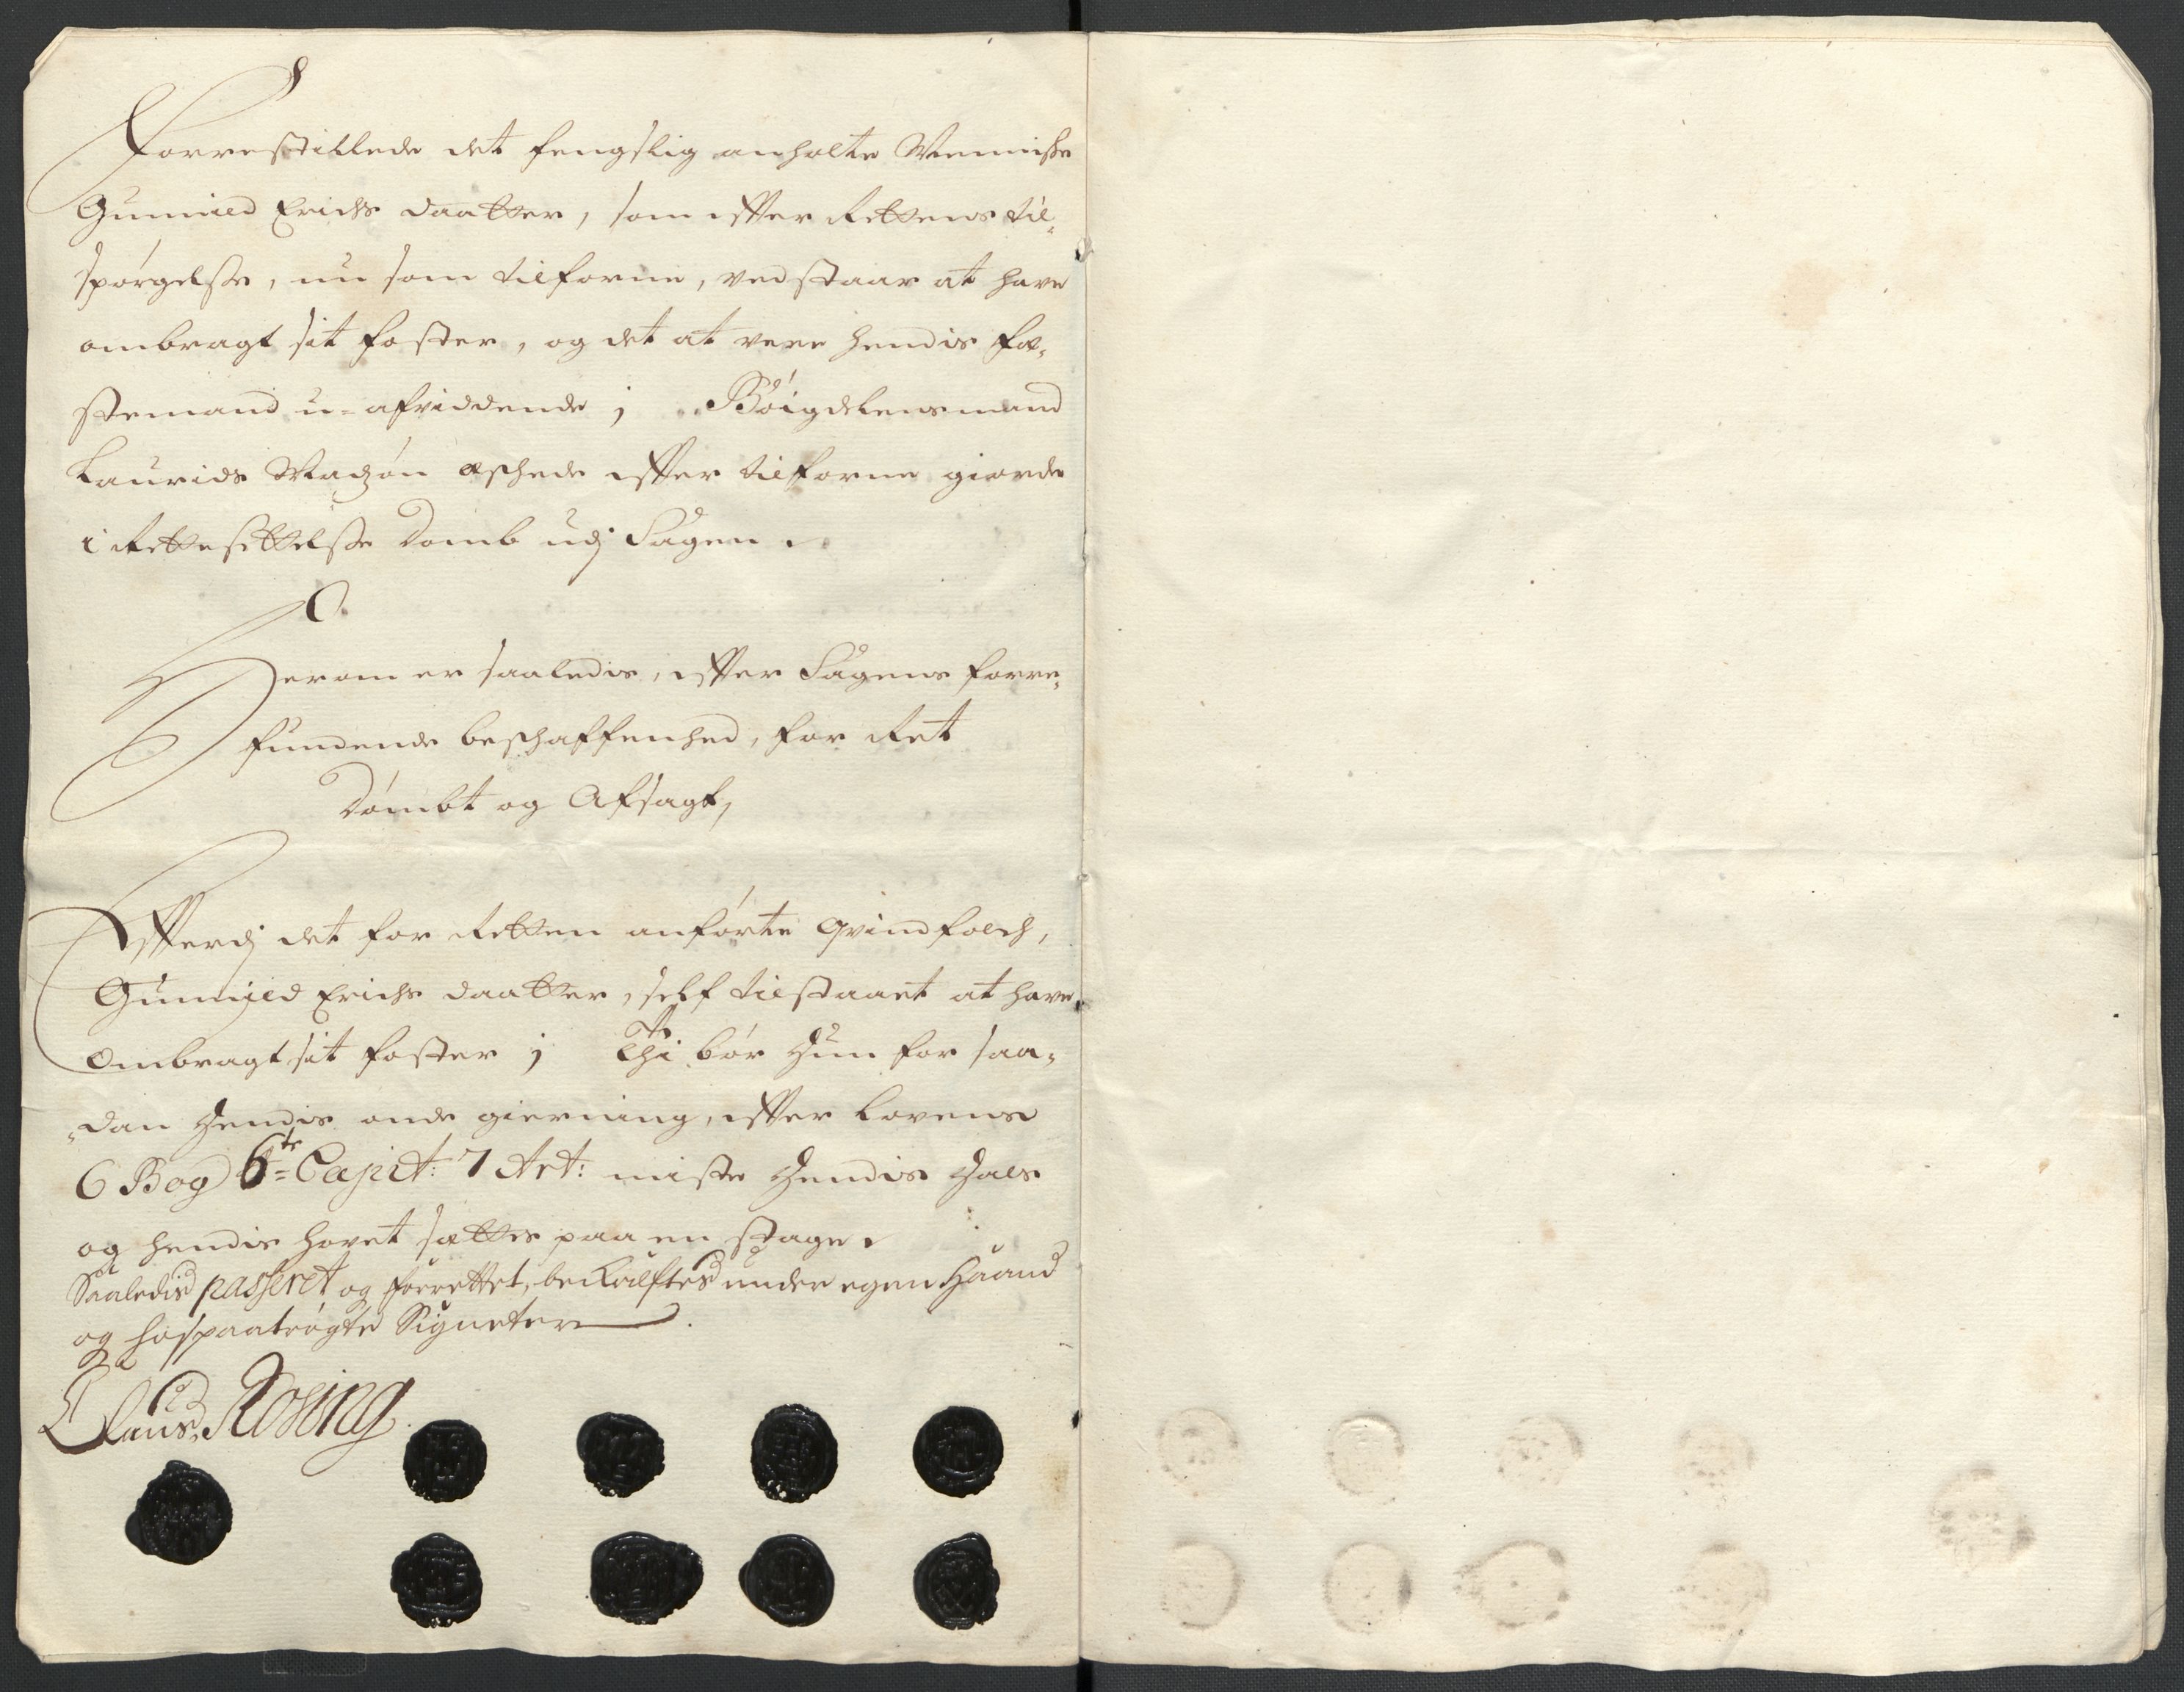 Forrestillede det fengslig anholte Menniske
Gunnild Erichs daatter, som effter Rettens til¬
spørgelse, nu som tilforne, vedstaar at have
ombragt sit foster, og det at vere hendis fæ¬
stemand u-afviddende; Bøigdelensmand
Laurids Madzøn æschede effter tilforne giorde
i Rettesettelse Domb udj Sagen.
Herom er saaledis, effter Sagens forre¬
fundende beschaffenhed, for Ret
Dømbt og Afsagt,
Effterdj det for Retten anførte qvindfolch,
Gunnild Erichs daatter, self tilstaaet at have
Ombragt sit foster; Thi bør Hun for saa¬
dan Hendis onde gierning, effter Lovens
6 Bog 6te Capit: 7 Art: miste Hendis Hals
og hendis hovet sættes paa en stage.
Saaledis passeret og forrettet, bekræftes under egen Haand
og hospaatrøgte Signeter.
Claus Rosing